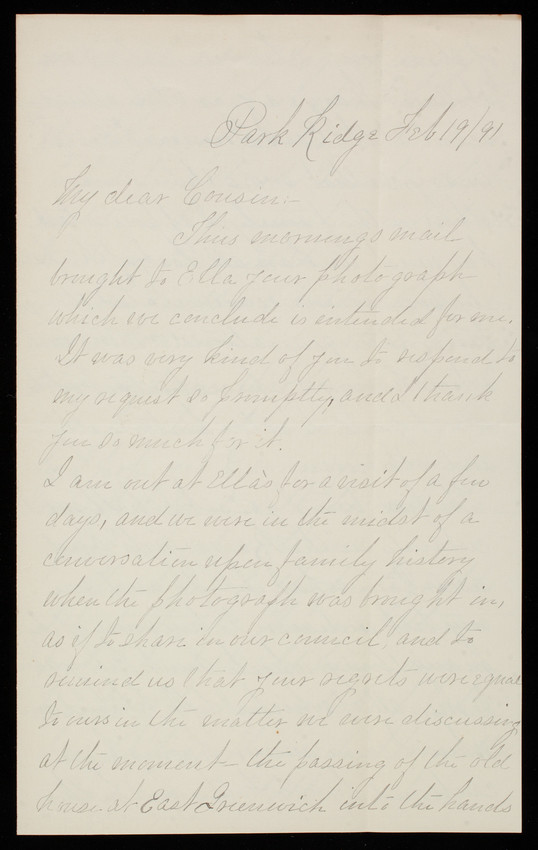 Park Ridge Feb 19/91
My dear Cousin:-
This mornings mail
brought to Ella your photograph
which we conclude is intended for me.
It was very kind of you to respond to
my request so promptly, and I thank
you so much for it.
I am out at Ella's for a visit of a few
days, and we were in the midst of a
conversation upon family history
when the photograph was brought in,
as if to share in our council, and to
remind us that your regrets were equal
to ours in the matter we were discussing
at the moment - the passing of the old
house at East Greenwich into the hands